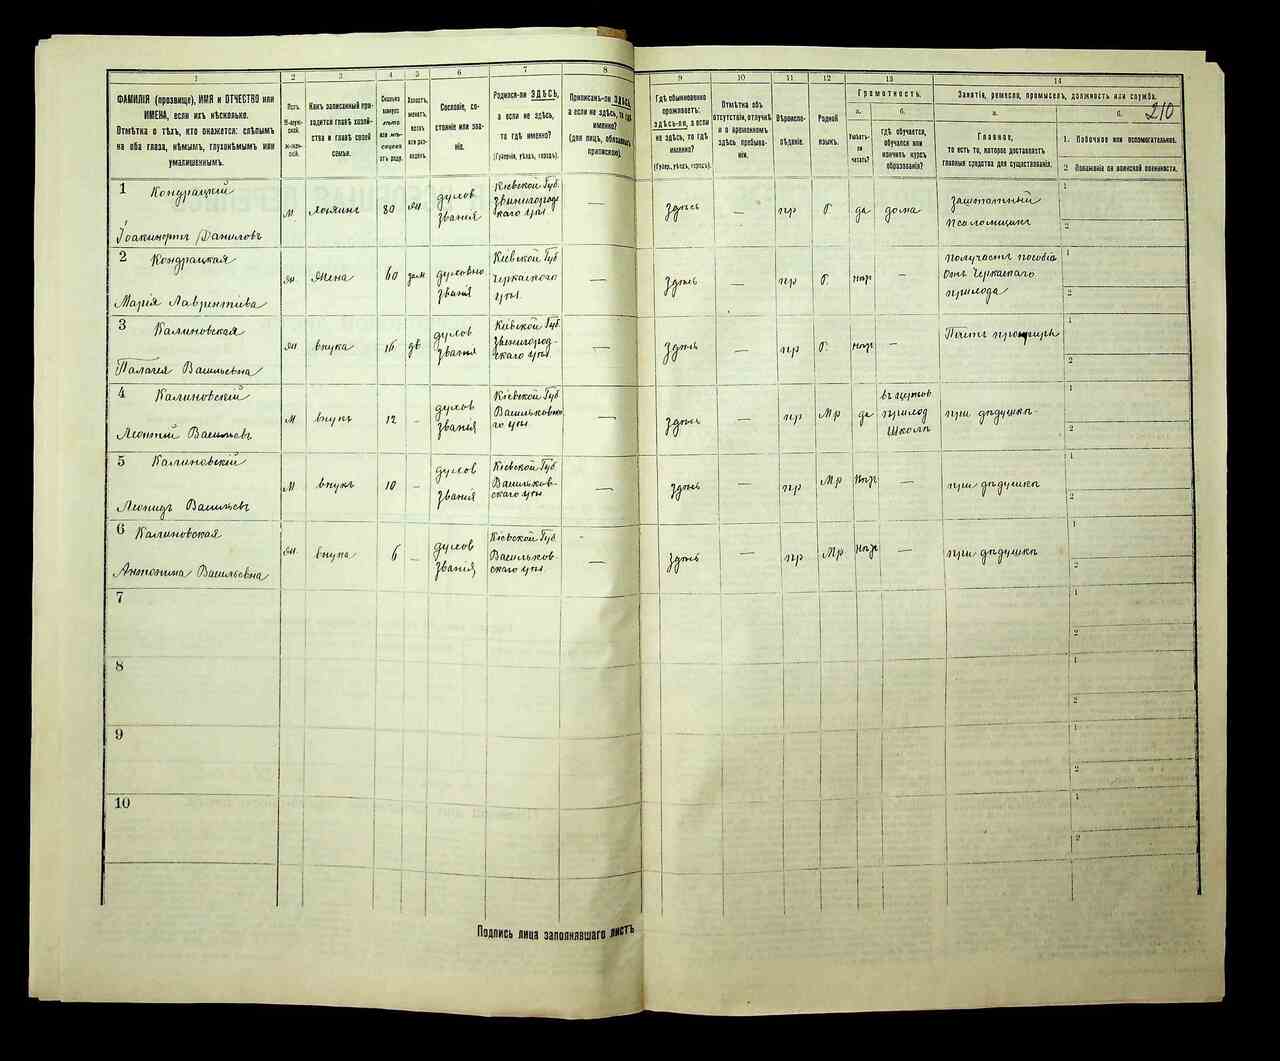 1
2
3
4
5
6
7
8
ФАМИЛІЯ (прозвище), ИМЯ и ОТЧЕСТВО или
ИМЕНА, если ихъ нѣсколько.
Отмѣтка о тѣхъ, кто окажется: слѣпымъ
на оба глаза, нѣмымъ, глухонѣмымъ или
умалишеннымъ.
Полъ.
М-муж-
ской.
Ж-жен-
скій.
Какъ записанный при-
ходится главѣ хозяй-
ства и главѣ своей
семьи.
Сколько
минуло
лѣтъ
или мѣ-
сяцевъ
отъ роду.
Холостъ,
женатъ,
вдовъ
или раз-
веденъ
Сословіе, со-
стояніе или зва-
ніе.
Родился-ли ЗДѢСЬ,
а если не здѣсь,
то гдѣ именно?
(Губернія, уѣздъ, городъ).
Приписанъ-ли ЗДѢСЬ,
а если не здѣсь, то гдѣ
именно?
(для лицъ, обязанныхъ
припискою).
9
10
11
12
13
14
Гдѣ обыкновенно
проживаетъ:
здѣсь-ли, а если
не здѣсь, то гдѣ
именно?
(Губер., уѣздъ, городъ).
Отмѣтка объ
отсутствіи, отлучкѣ
и о временномъ
здѣсь пребыва-
ніи.
Вѣроиспо-
вѣданіе.
Родной
языкъ.
Грамотность.
а.
б.
Умѣетъ-
ли
читать?
гдѣ обучается,
обучался или
кончилъ курсъ
образованія?
Занятіе, ремесло, промыселъ, должность или служба.
а.
б.
210
Главное,
то есть то, которое доставляетъ
главныя средства для существованія.
1. Побочное или вспомогательное.
2 Положеніе по воинской повинности.
1 Кондрацкій
Іоакинфъ Даниловъ
м хозяинъ 80 жн духов званія Кіевской Губ. Звинигородскаго уѣз. —
Здѣсь — пр Г. да дома Заштатный псаломщикъ
1
2
2 Кондрацкая
Марія Лаврентіева
жн жена 60 зам духовно званія Кіевской Губ Черкаскаго уѣз. —
Здѣсь — пр Г. нѣт — Получаетъ пособіе отъ Черкаскаго прихода
1
2
3 Калиновская
Палагея Васильевна
жн внука 16 дѣ духов званія Кіевской Губ. Звенигородскаго уѣз. —
Здѣсь — пр Г. нѣт —
1
2
4 Калиновскій
Леонтій Васильевъ
м внукъ 12 - духов званія Кіевской Губ. Васильковскаго уѣз. —
Здѣсь — пр Мр да въ церков приход школѣ при дѣдушкѣ
1
2
5 Калиновскій
Леонидъ Васильевъ
м внукъ 10 - духов званія Кіевской Губ Васильковскаго уѣз —
Здѣсь — пр Мр нѣт — при дѣдушкѣ
1
2
6 Калиновская
Антонина Васильевна
жн внука 6 - духов званія Кіевской Губ. Васильковскаго уѣз. —
Здѣсь — пр Мр нѣт — при дѣдушкѣ
1
2
7
1
2
8
1
2
9
1
2
10
1
2
Подпись лица заполнявшаго листъ